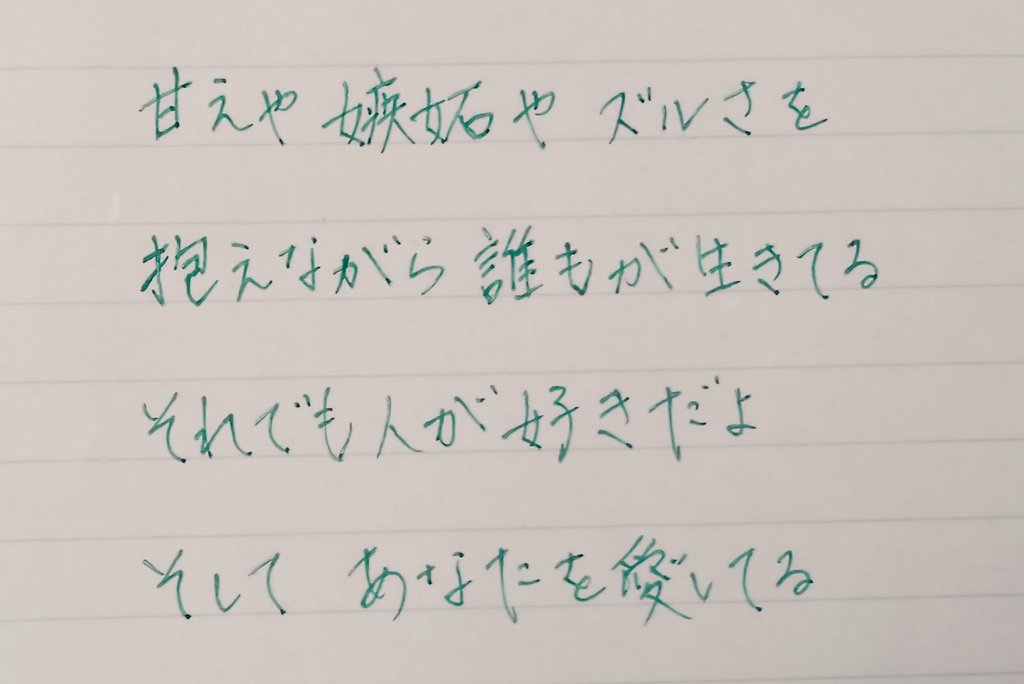 甘えや 嫉妬や ズルさを
抱えながら 誰もが生きてる
それでも人が好きだよ
そして あなたを愛してる